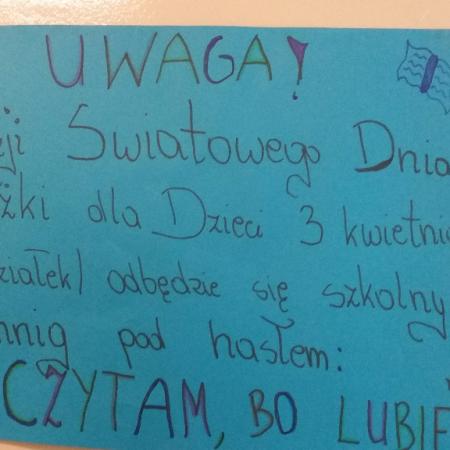 UWAGA!
ji Światowego Dnia
żki dla Dzieci 3 kwietnia
ziałek) odbędzie się szkolny
nnig pod hasłem:
CZYTAM, BO LUBIĘ